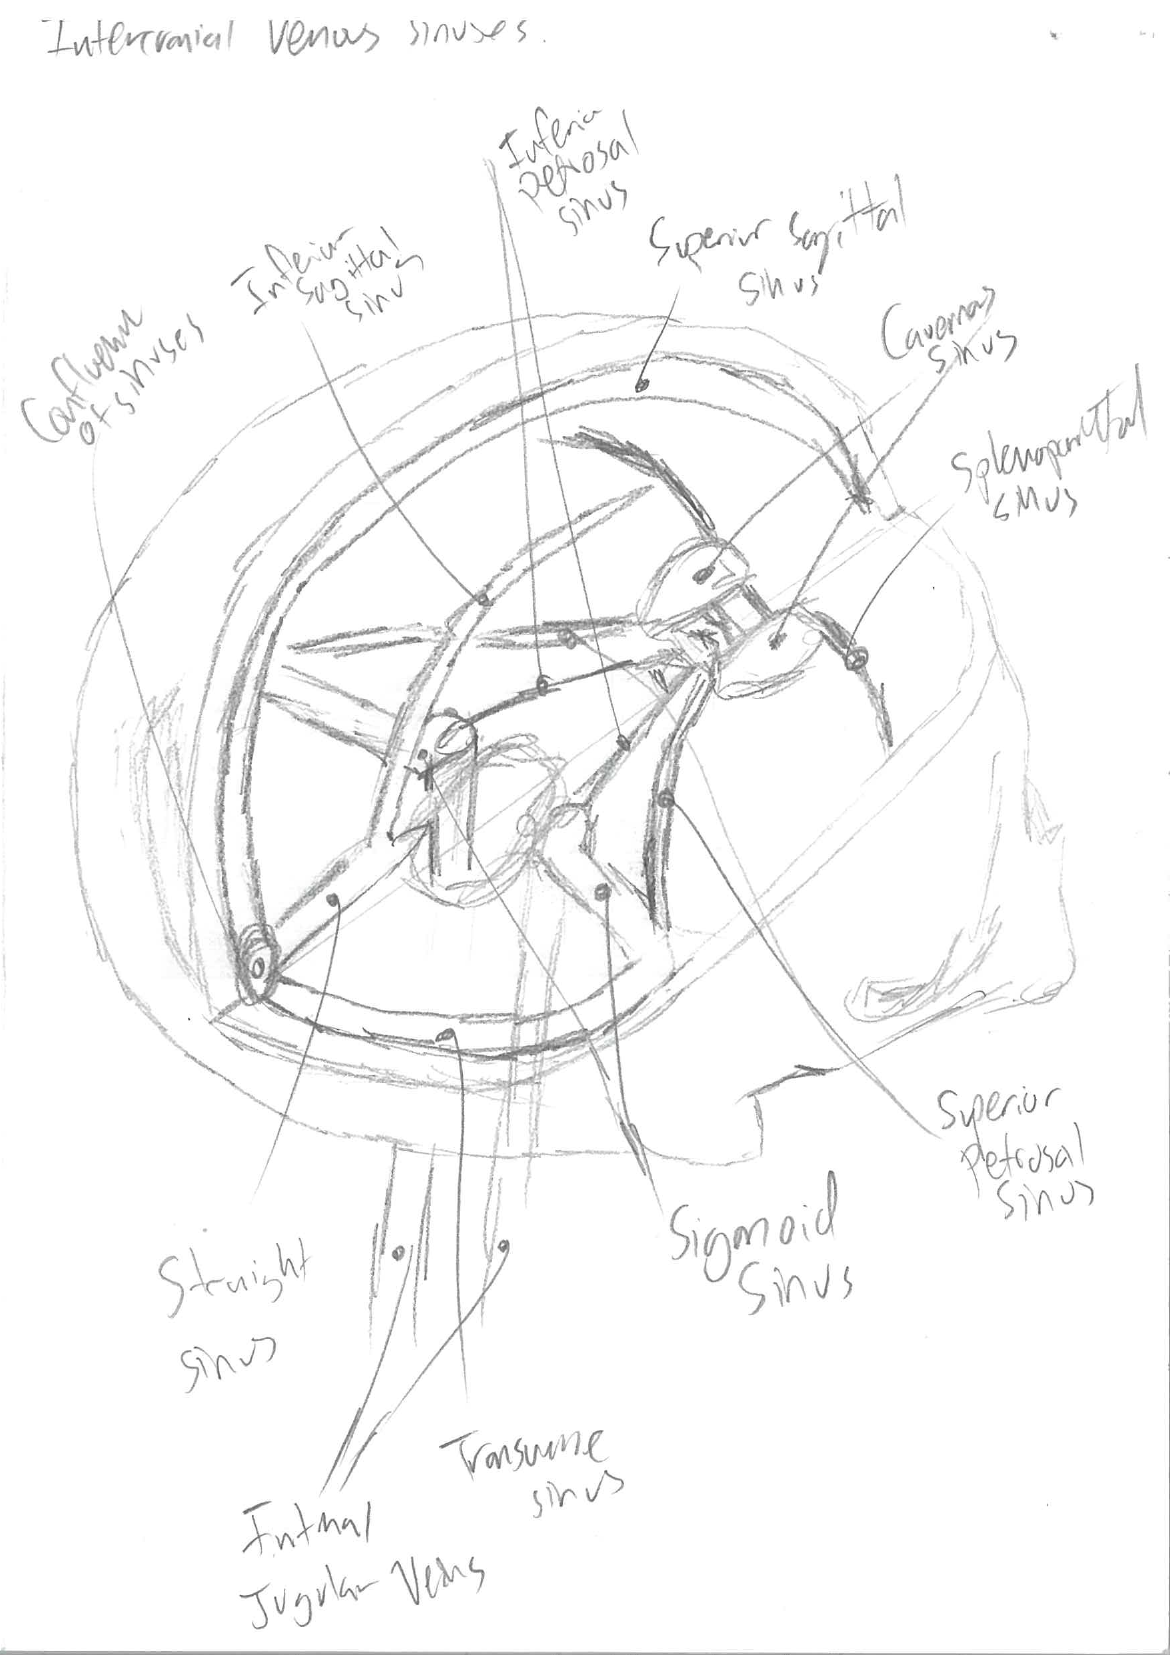 Intercranial venous sinuses.
Inferior
petrosal
sinus
Superior Sagittal
Sinus
Inferior
Sagittal
sinus
Cavernous
sinus
Confluence
of sinuses
sinus
Superior
petrosal
sinus
Sigmoid
Sinus
Straight
sinus
Transverse
sinus
Internal
Jugular Veins